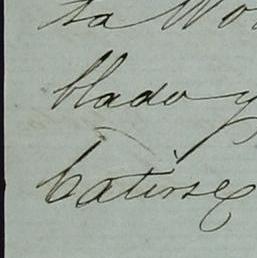 ta Wo
blado y
batirse